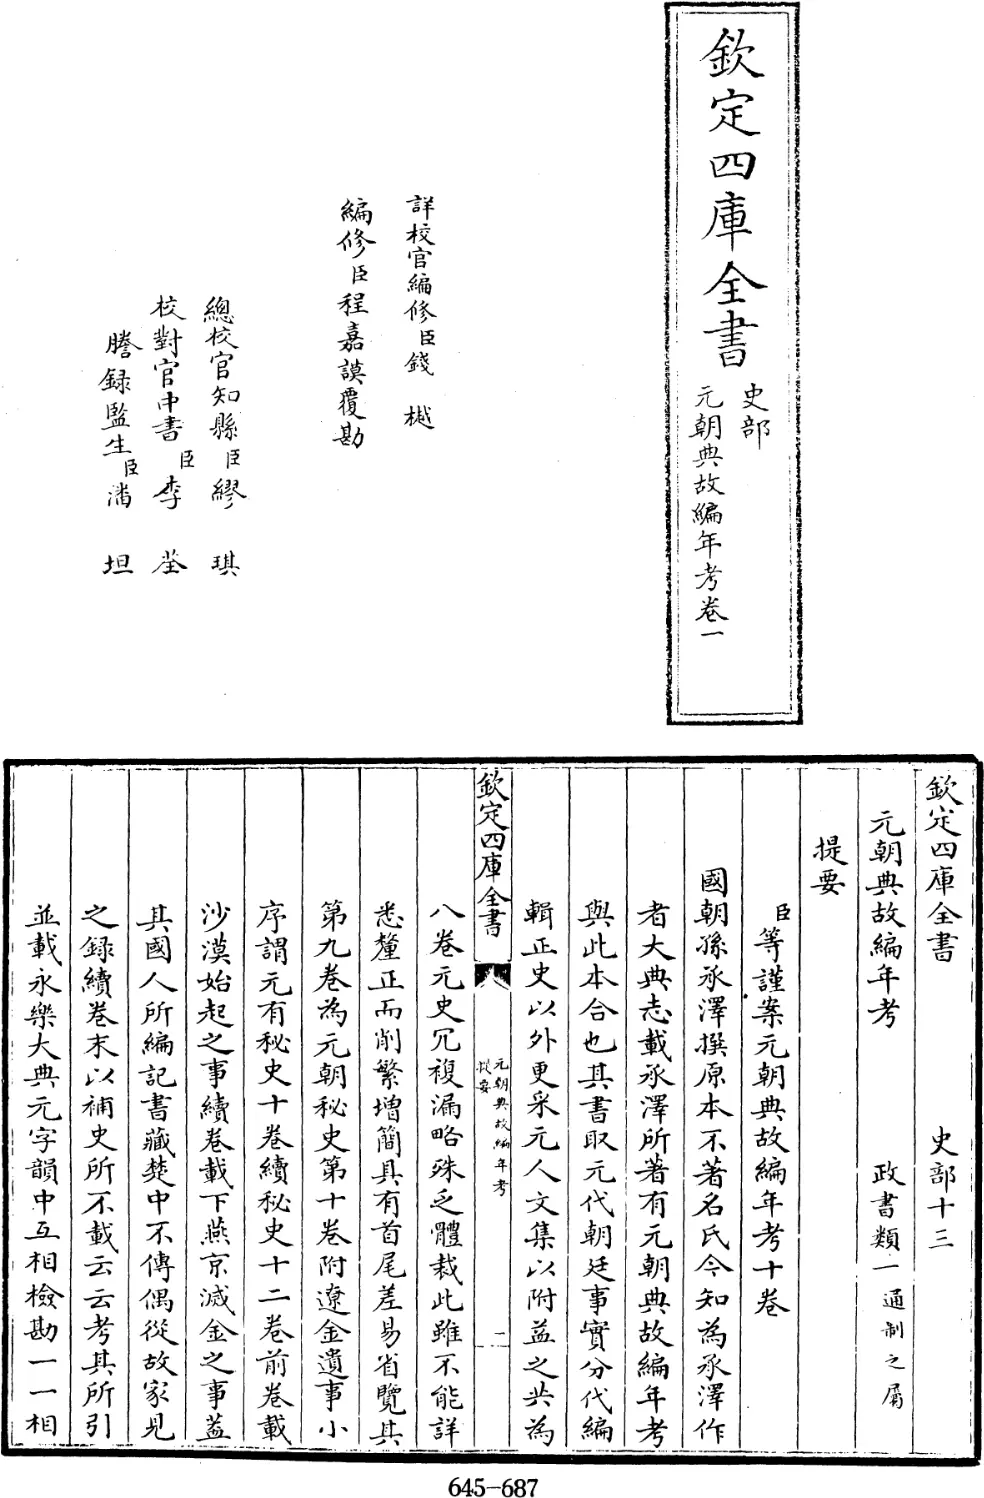 欽定四庫全書
史部
元朝典故編年考卷一
詳校官編修臣錢樾
編修臣程嘉謨覆勘
總校官知縣臣繆琪
校對官中書臣李荃
謄録監生臣潘坦
欽定四庫全書 史部十三
元朝典故編年考 政書類一通制之屬
提要
臣等謹案元朝典故編年考十卷
國朝孫承澤撰原本不著名氏今知為承澤作
者大典志載承澤所著有元朝典故編年考
與此本合也其書取元代朝廷事實分代編
輯正史以外更采元人文集以附益之共為
欽定四庫全書
元朝典故編年考
提要
一
八卷元史冗複漏略殊乏體裁此雖不能詳
悉釐正而削繁增簡具有首尾差易省覽其
第九卷為元朝秘史第十卷附遼金遺事小
序謂元有秘史十卷續秘史十二卷前卷載
沙漠始起之事續卷載下燕京滅金之事蓋
其國人所編記書藏楚中不傳偶從故家見
之録續卷末以補史所不載云云考其所引
並載永樂大典元字韻中互相檢勘一一相
645-687